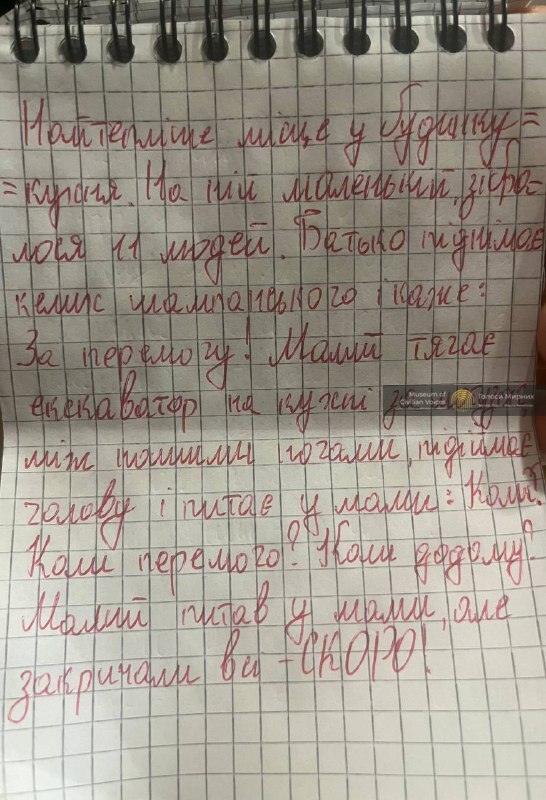 Найтепліше місце у будинку=
=кухня. На ній маленькій, зібра=
лося 11 людей. Батько піднімає
келих шампанського і каже:
За перемогу! Малий тягає
екскаватор на кухні
Museum of Civilian Voices
Голоси Мирних
між нашими ногами, піднімає
голову і питає у мами: Коли?
Коли перемога? Коли додому?
Малий питав у мами, але
закричали ви - СКОРО!